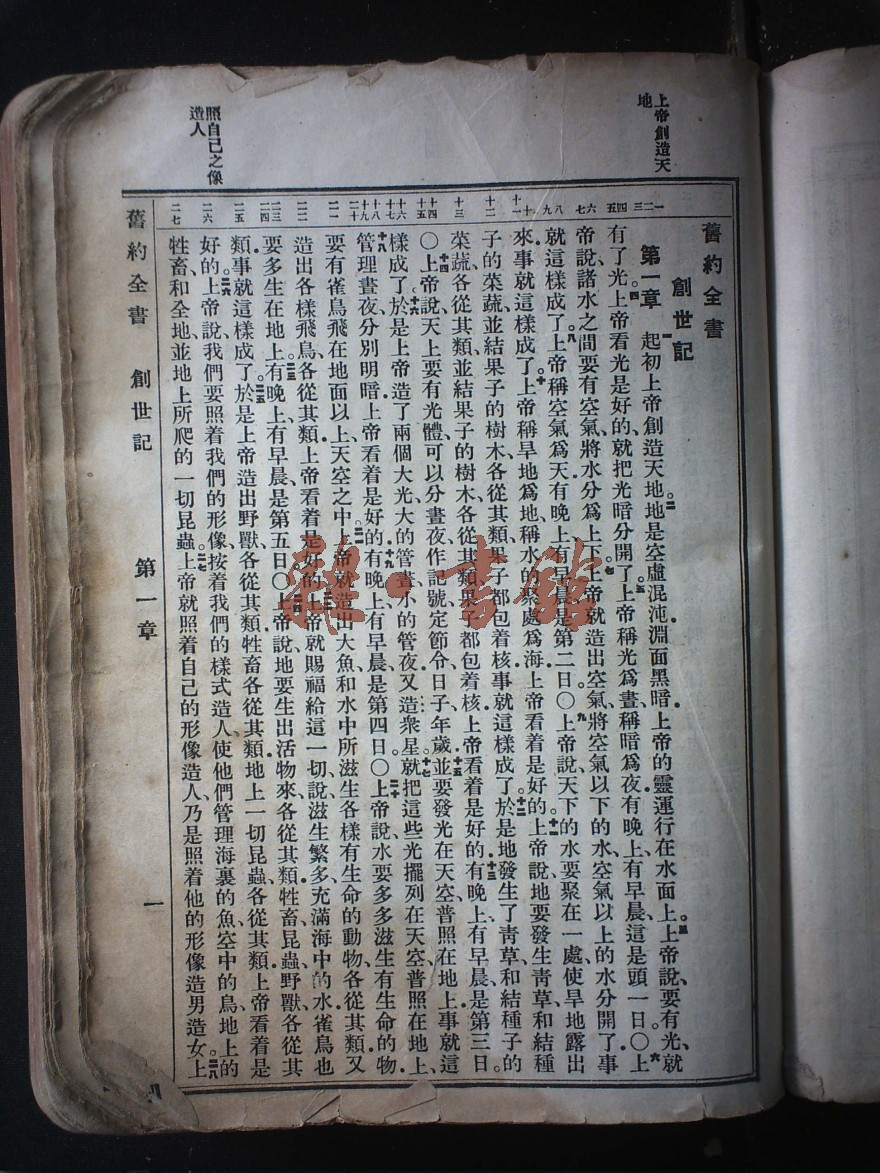 上帝創造天
地
照自己之像
造人
一二三四五六七八九十十一十二十三十四十五十六十七十八十九二十二一二二二三二四二五二六二七
舊約全書
創世記
第一章 一起初上帝創造天地、二地是空虛混沌淵面黑暗、上帝的靈運行在水面上。三上帝說、要有光、就
有了光。四上帝看光是好的、就把光暗分開了。五上帝稱光爲晝、稱暗爲夜、有晚上、有早晨、這是頭一日。〇六上
帝說、諸水之間要有空氣、將水分爲上下。七上帝就造出空氣、將空氣以下的水、空氣以上的水分開了、事
就這樣成了。八上帝稱空氣爲天、有晚上、有早晨、是第二日。〇九上帝說、天下的水要聚在一處、使旱地露出
來、事就這樣成了。十上帝稱旱地爲地、稱水的聚處爲海、上帝看着是好的。十一上帝說、地要發生青草、和結種
子的菜蔬、並結果子的樹木、各從其類、果子都包着核、事就這樣成了。十二於是地發生了青草、和結種子的
菜蔬、各從其類、並結果子的樹木、各從其類、果子都包着核、上帝看着是好的。十三有晚上、有早晨、是第三日。
〇十四上帝說、天上要有光體、可以分晝夜、作記號、定節令、日子、年歲、十五並要發光在天空、普照在地上、事就這
樣成了。十六於是上帝造了兩個大光、大的管晝、小的管夜、又造衆星。十七就把這些光擺列在天空、普照在地上、
十八管理晝夜、分別明暗、上帝看着是好的。十九有晚上、有早晨、是第四日。〇二十上帝說、水要多多滋生有生命的物、
要有雀鳥飛在地面以上、天空之中。二一上帝就造出大魚、和水中所滋生各樣有生命的動物、各從其類、又
造出各樣飛鳥、各從其類、上帝看着是好的。二二上帝就賜福給這一切、說、滋生繁多、充滿海中的水、雀鳥也
要多生在地上。二三有晚上、有早晨、是第五日。〇二四上帝說、地要生出活物來、各從其類、牲畜、昆蟲、野獸、各從其
類、事就這樣成了。二五於是上帝造出野獸、各從其類、牲畜、各從其類、地上一切昆蟲、各從其類、上帝看着是
好的。二六上帝說、我們要照着我們的形像、按着我們的樣式造人、使他們管理海裏的魚、空中的鳥、地上的
牲畜、和全地、並地上所爬的一切昆蟲。二七上帝就照着自己的形像造人、乃是照着他的形像造男造女。二八上
舊約全書 創世記 第一章 一
雜·書館